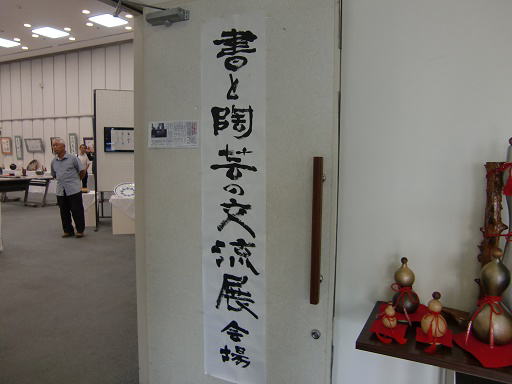 書と陶芸の交流展会場